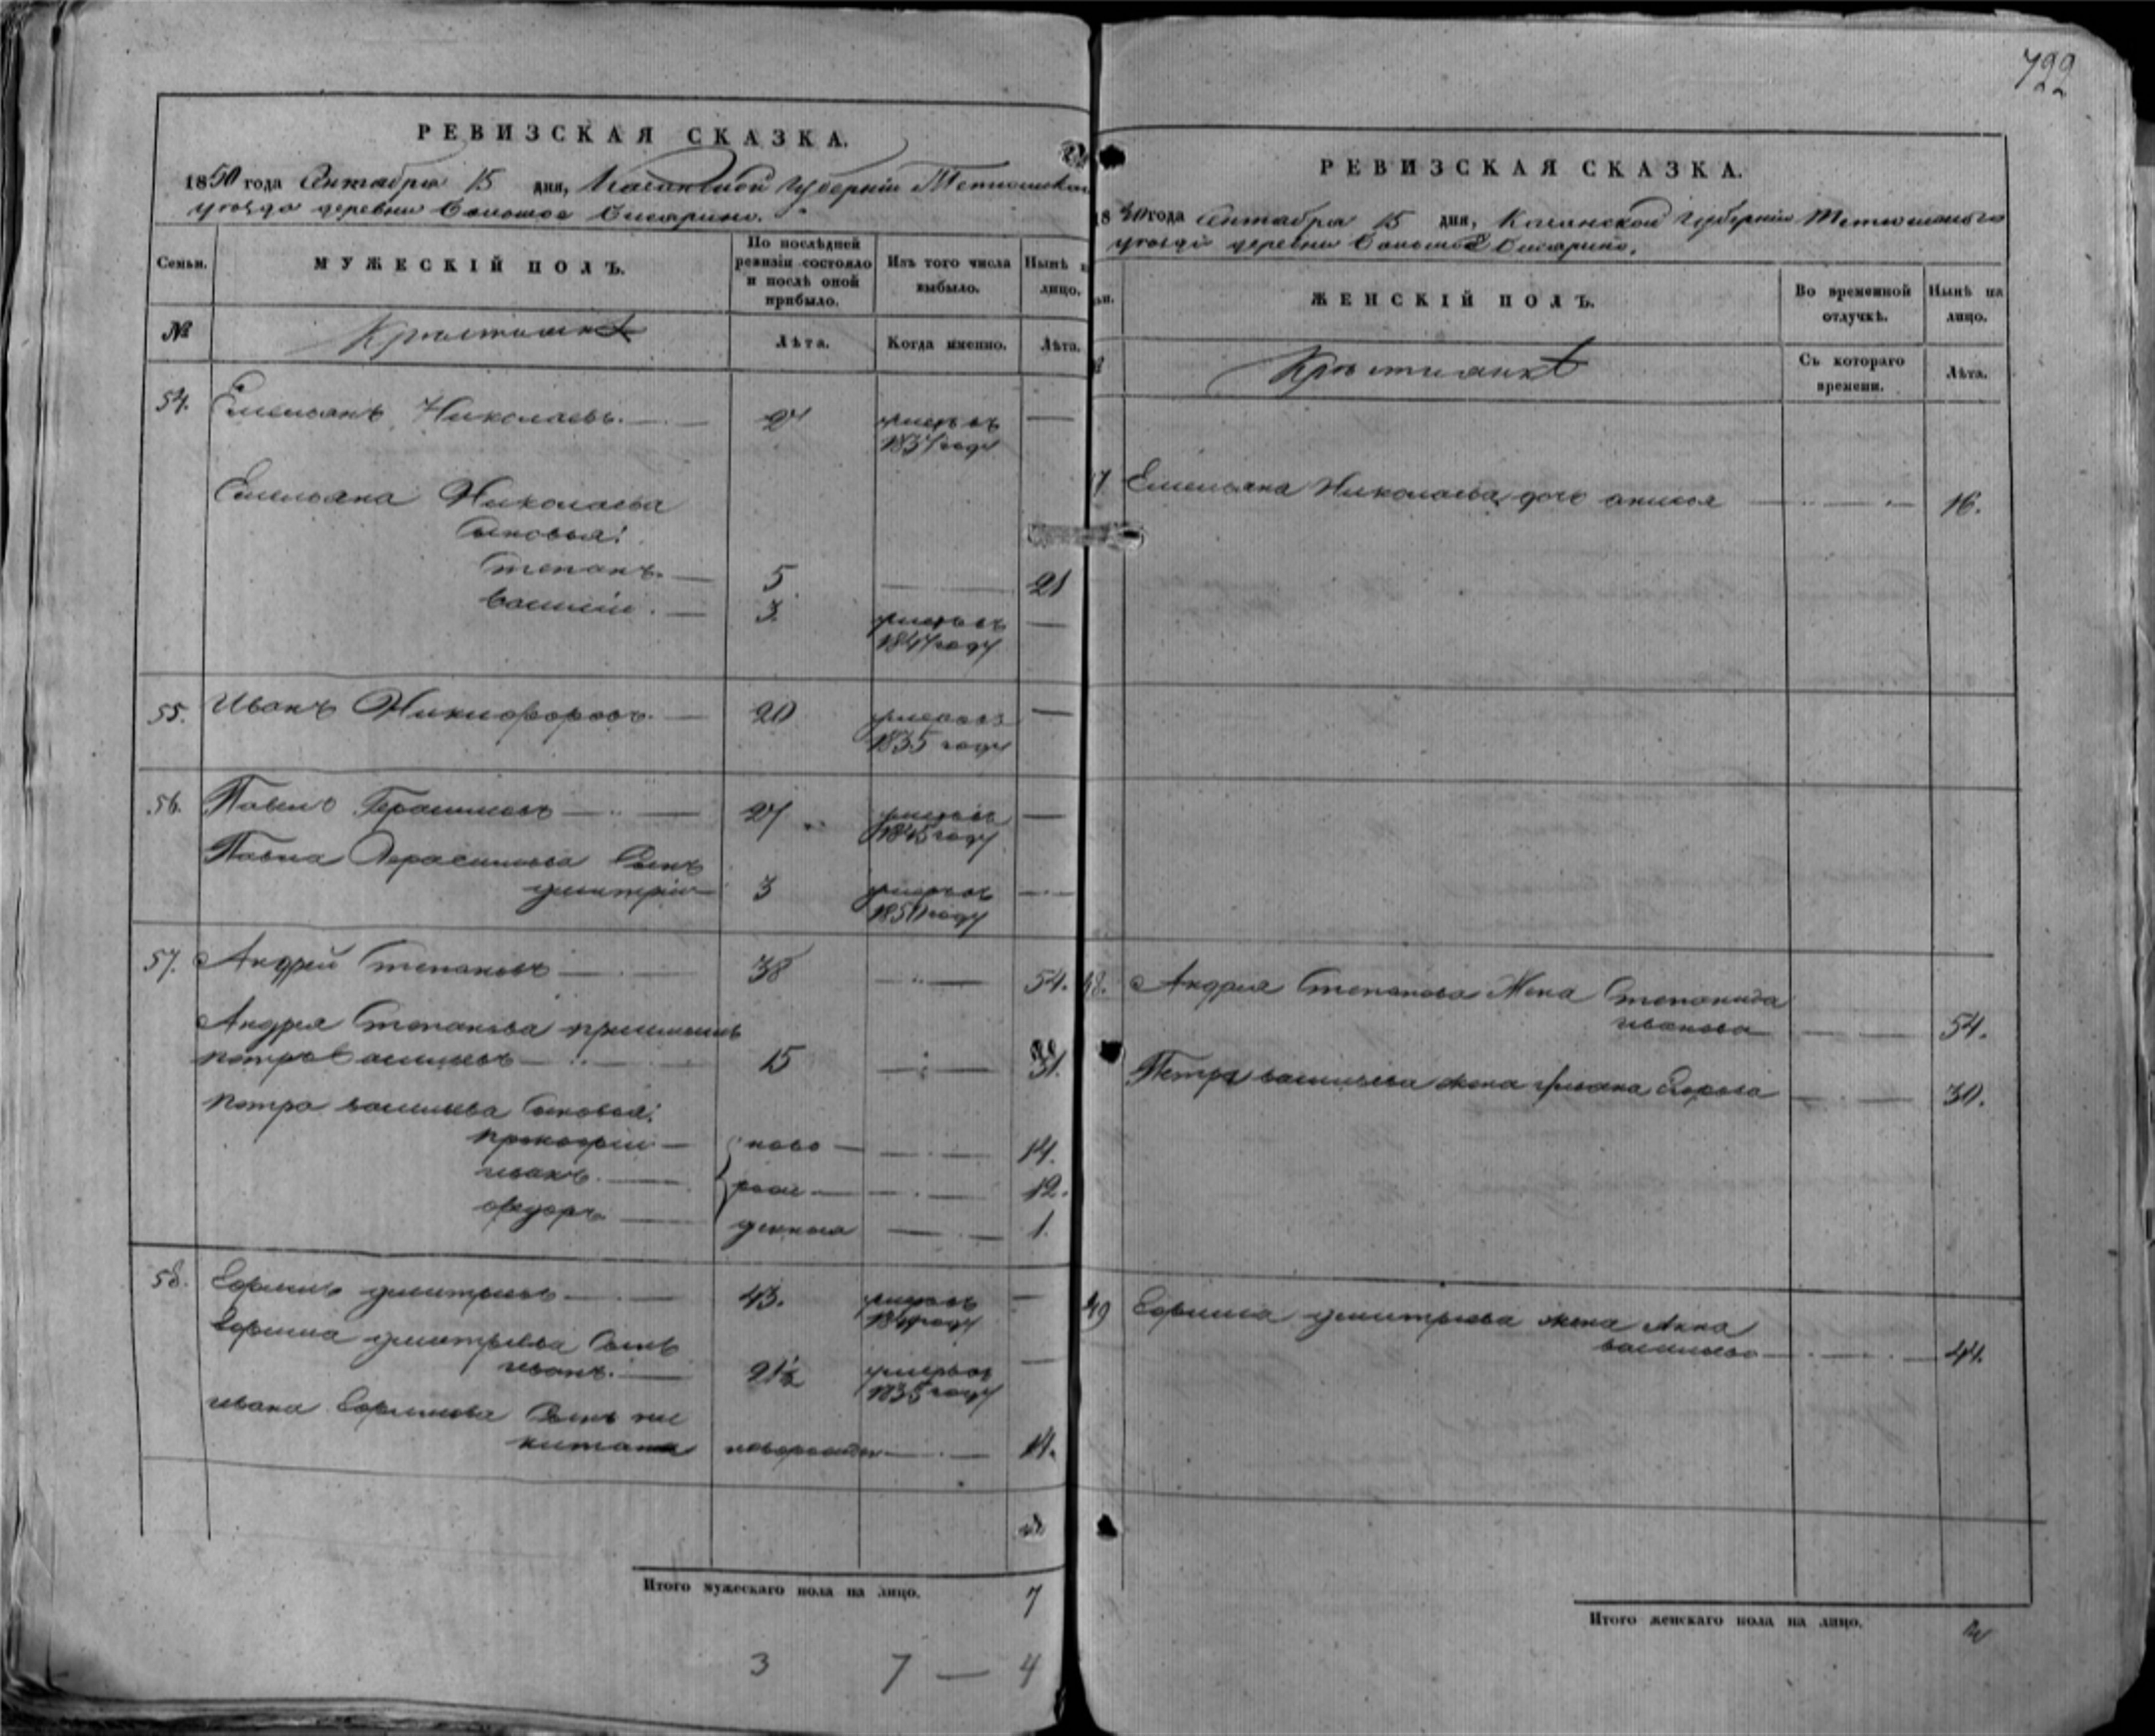 722
РЕВИЗСКАЯ СКАЗКА.
1850 года Сентября 15 дня, Казанской Губерніи Тетюшскаго
уезда деревни
Семьи.
МУЖЕСКІЙ ПОЛЪ.
По послѣдней ревизіи состояло и послѣ оной прибыло.
Изъ того числа выбыло.
Нынѣ на лицо.
№
Лѣта.
Когда именно.
Лѣта.
54. Емельянъ Николаевъ. 24 —
Емельяна Николаева
Сыновья:
Степанъ. 5 21
Василій. 3
55. Иванъ Никифоровъ. 20 умеръ въ —
1835 году
56. Павелъ Герасимовъ 27 умеръ въ —
1845 году
Павла Герасимова Сынъ
Дмитрій 3 умеръ въ —
1850 году
57. Андрей Степановъ 38 54.
Андрея Степанова
Петръ Васильевъ 15 31.
Петра Васильева Сыновья:
Прокофій ново 14.
Иванъ рож 12.
Федоръ денныя 1.
58. Ефимъ Дмитріевъ 43. умеръ въ —
Ефима Дмитріева Сынъ
Иванъ. 21½ умеръ въ —
1835 году
Ивана Ефимова Сынъ Ни
кита 14.
Итого мужескаго пола на лицо. 7
3 7 — 4
РЕВИЗСКАЯ СКАЗКА.
1850 года Сентября 15 дня, Казанской Губерніи Тетюшскаго
уезда деревни
ЖЕНСКІЙ ПОЛЪ.
Во временной отлучкѣ.
Нынѣ на лицо.
Съ котораго времени.
Лѣта.
Емельяна Николаева дочь 16.
Андрея Степанова Жена Степанида
Иванова 54.
Петра Васильева жена Ульяна 30.
Ефима Дмитріева жена Анна
Васильева 44.
Итого женскаго пола на лицо.